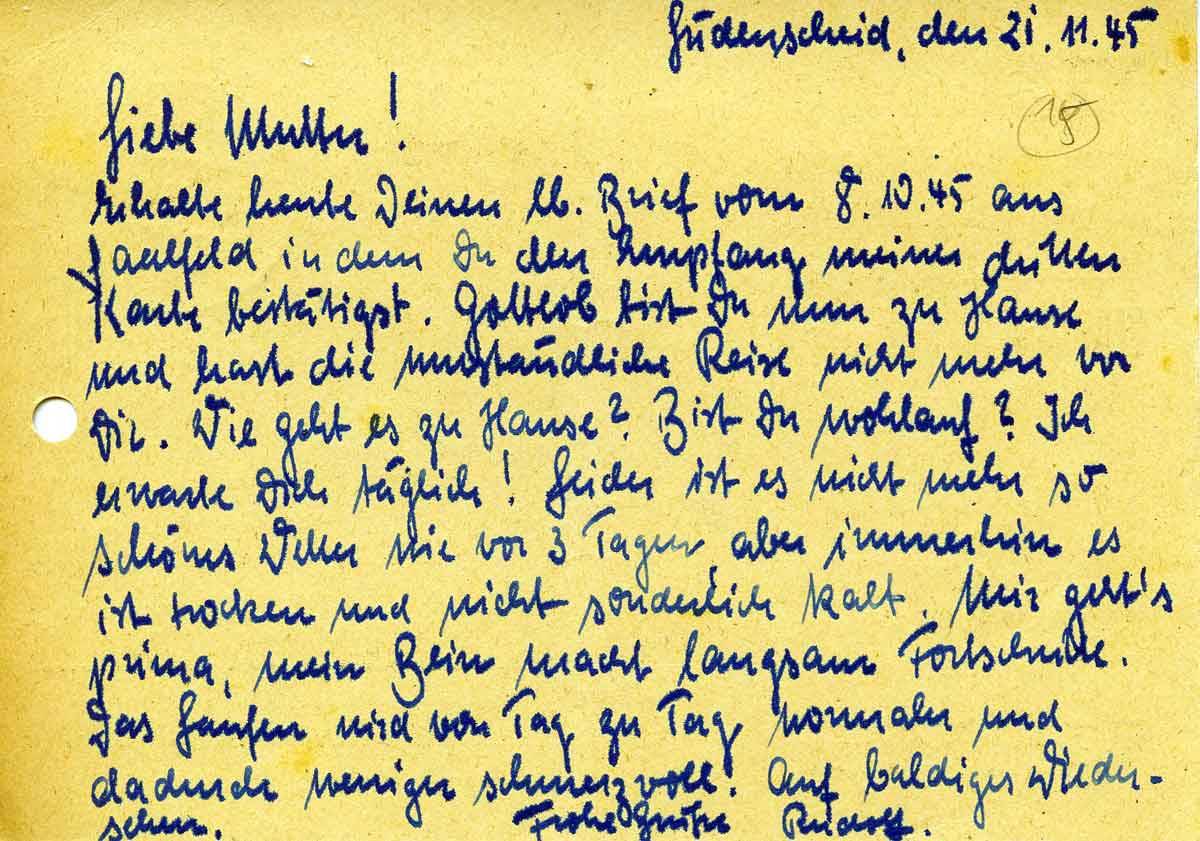 Lüdenscheid, den 21.11.45
15
Liebe Mutter!
Erhalte heute Deinen lb. Brief vom 8.10.45 aus
Saalfeld in dem Du den Empfang meiner dritten
Karte bestätigst. Gottlob bist Du nun zu Hause
und hast die umständliche Reise nicht mehr vor
Dir. Wie geht es zu Hause? Bist Du wohlauf? Ich
erwarte Dich täglich! Leider ist es nicht mehr so
schönes Wetter wie vor 3 Tagen, aber immerhin es
ist trocken und nicht sonderlich kalt. Mir geht's
prima, mein Bein macht langsam Fortschritte.
Das Laufen wird von Tag zu Tag normaler und
dadurch weniger schmerzvoll. Auf baldiges Wieder-
sehen. Frohe Grüße Rudolf.